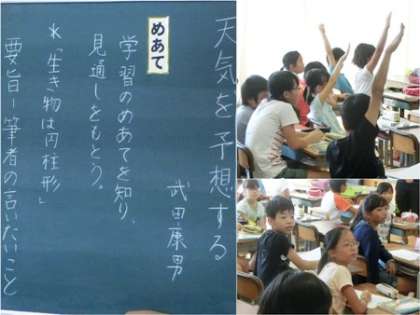 天気を予想する
武田康男
めあて
学習のめあてを知り、
見通しをもとう。
*「生き物は円柱形」
要旨ー筆者の言いたいこと